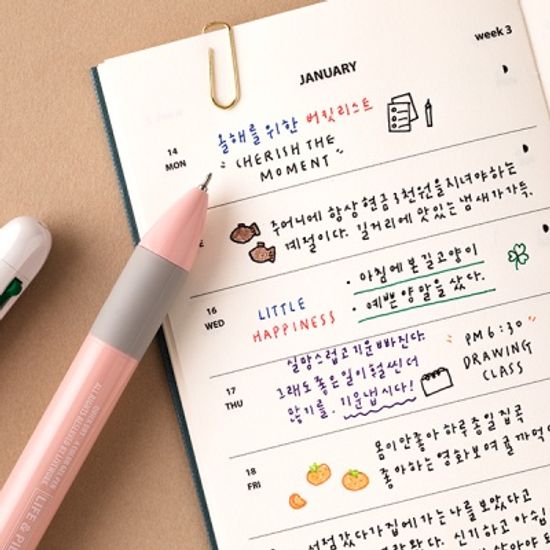 week 3
JANUARY
14
MON
올해를 위한 버킷리스트
"CHERISH THE
MOMENT"
E
주머니에 항상 현금 3천원을 지녀야 하는
계절이다. 길거리에 맛있는 냄새가 가득.
16
WED
LITTLE
HAPPINESS
• 아침에 본 길고양이
• 예쁜 양말을 샀다.
17
THU
실망스럽고 기운빠진다.
그래도 좋은 일이 훨씬 더
많기를. 기운냅시다!
PM 6:30
DRAWING
CLASS
18
FRI
몸이 안좋아 하루종일 집콕
좋아하는 영화보며 귤 까먹
서점갔다가 집에 가는 나를 보았다고
신기하고 아쉽
LIFE & PI